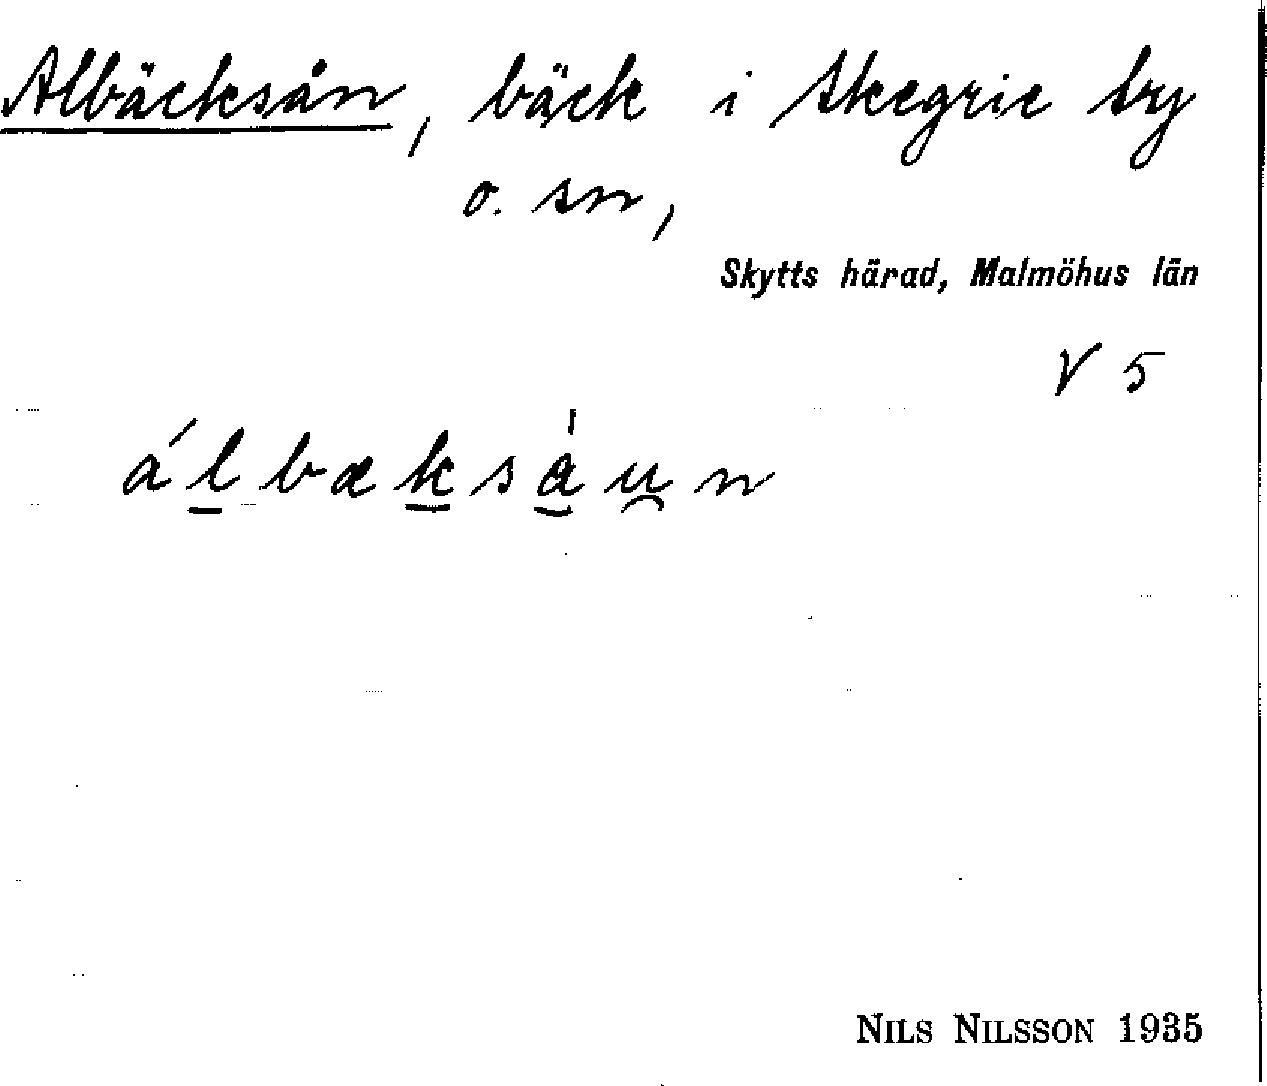 Albäcksån, bäck i Skegrie by
o. sn,
Skytts härad, Malmöhus län
V 5
álbæksȧu̯n
NILS NILSSON 1935